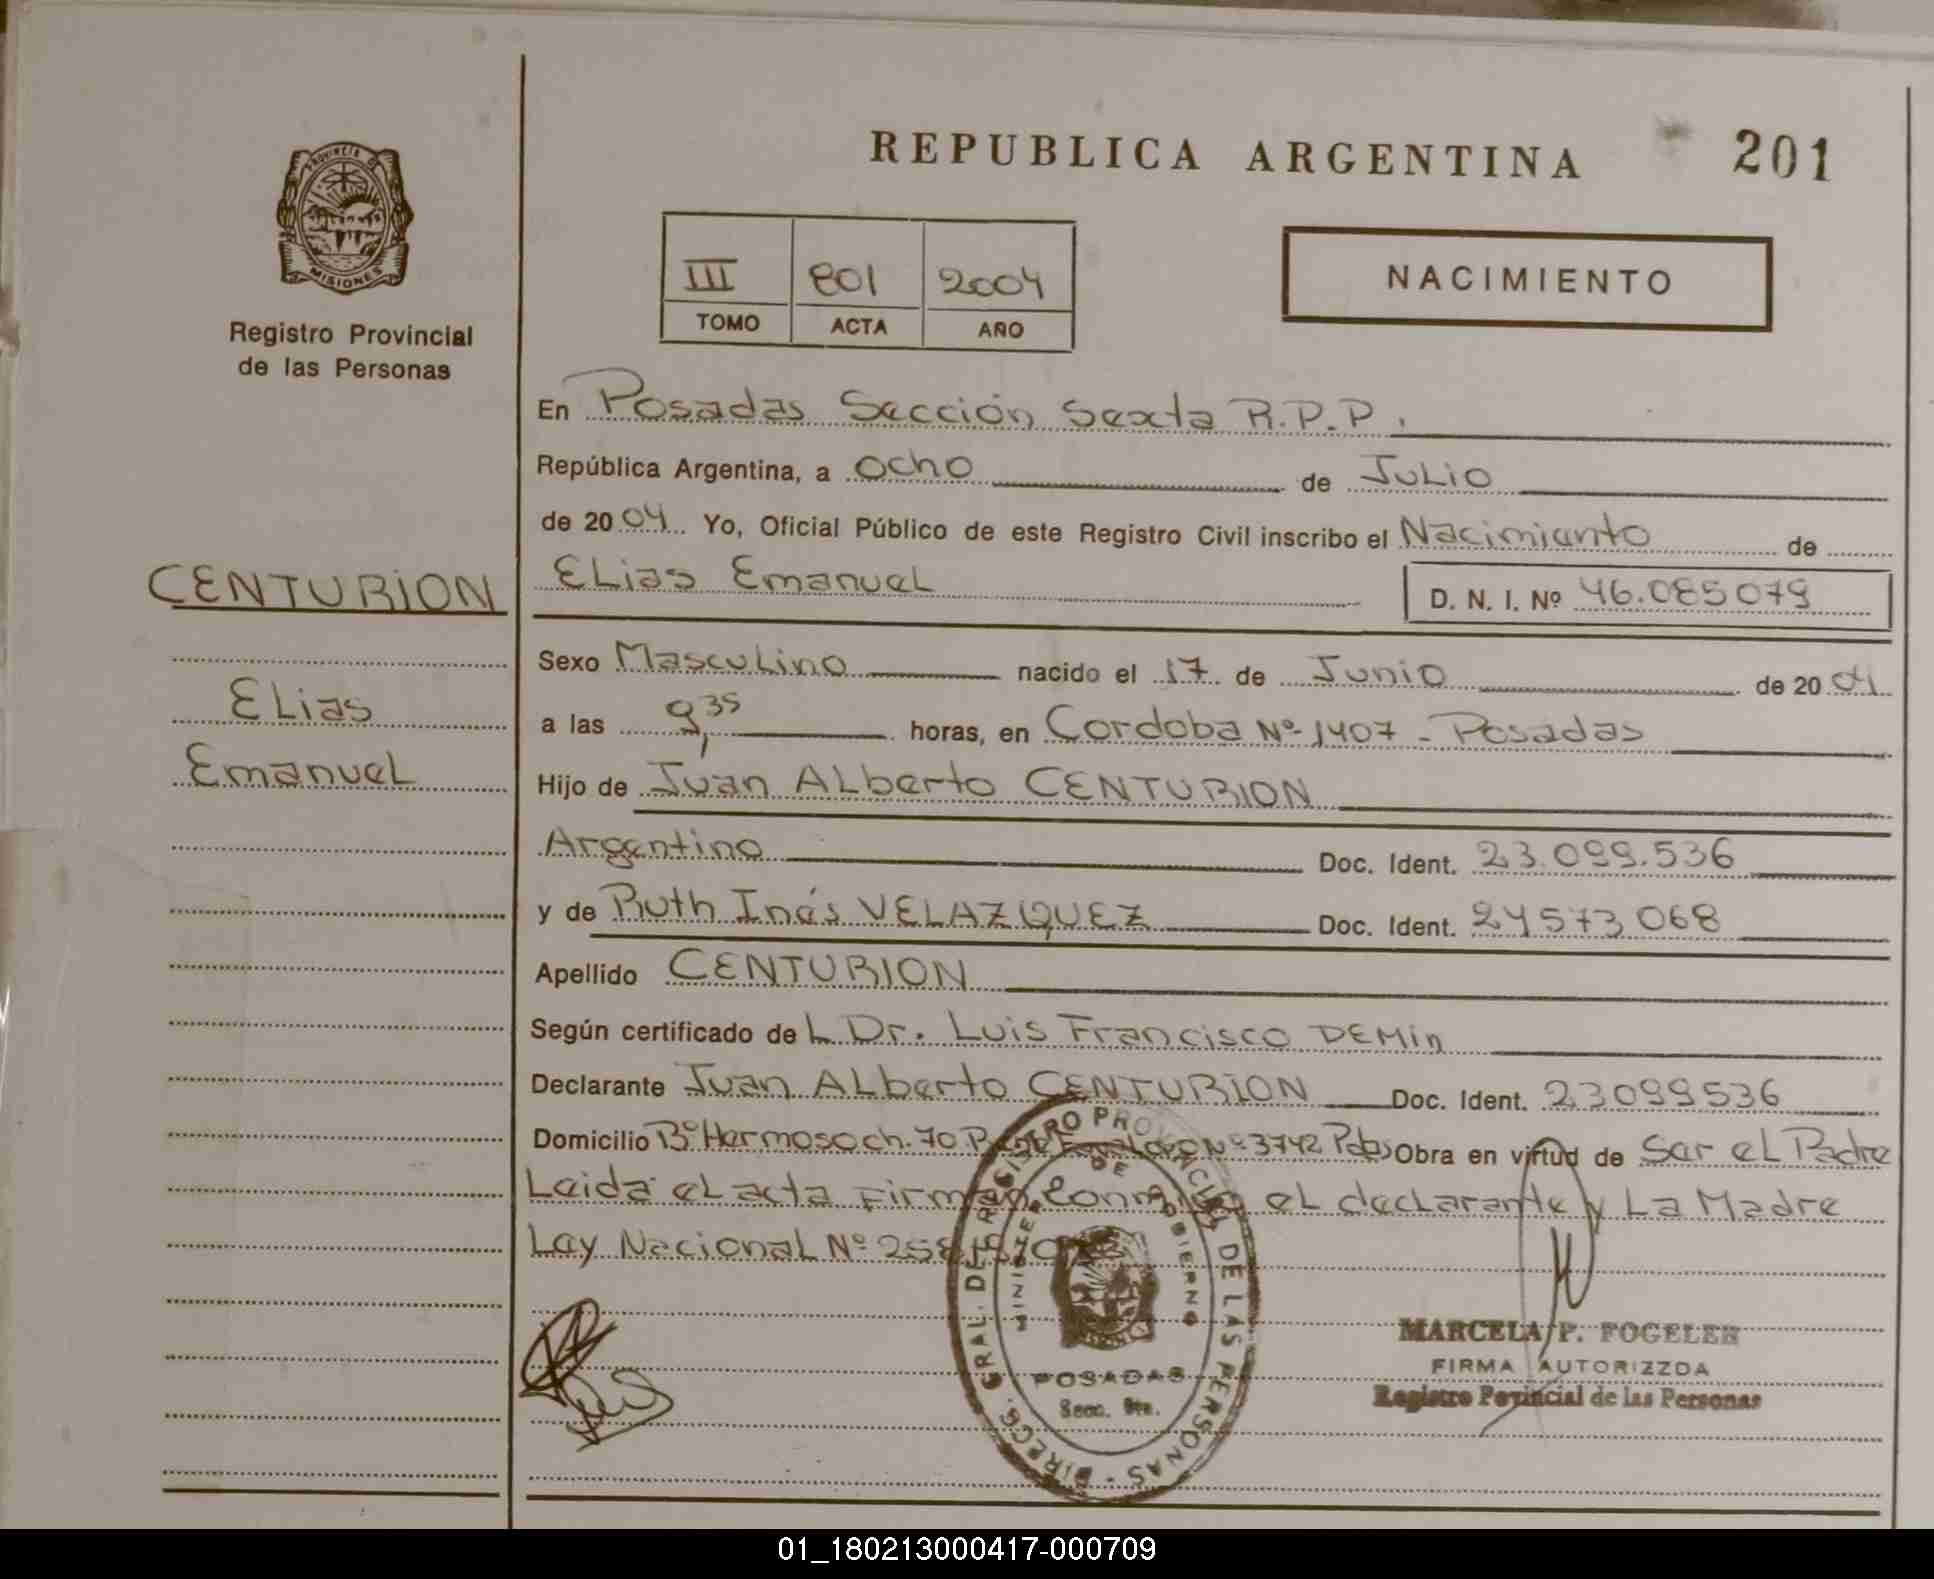 REPUBLICA ARGENTINA 201
PROVINCIA DE
MISIONES
Registro Provincial
de las Personas
III 801 2004
TOMO ACTA AÑO
NACIMIENTO
En Posadas Sección Sexta R.P.P.
República Argentina, a ocho de Julio
de 2004 Yo, Oficial Público de este Registro Civil inscribo el Nacimiento de
CENTURION
Elias Emanuel D. N. I. Nº 46.085079
Sexo Masculino nacido el 17 de Junio de 2004
Elias
a las 9,35 horas, en Cordoba Nº 1407 - Posadas
Emanuel
Hijo de Juan Alberto CENTURION
Argentino Doc. Ident. 23.099.536
y de Ruth Inés VELAZQUEZ Doc. Ident. 24573068
Apellido CENTURION
Según certificado de L Dr. Luis Francisco DEMin
Declarante Juan Alberto CENTURION Doc. Ident. 23099536
Domicilio Bº Hermoso ch. 70 Nº 3742 Pdas Obra en virtud de Ser el Padre
Leida el acta Firman Conmigo el declarante y La Madre
Ley Nacional Nº
DIRECC. GRAL. DE REGISTRO PROVINCIAL DE LAS PERSONAS
MINISTERIO DE GOBIERNO
POSADAS
Secc. 6ta.
MARCELA P. FOGELER
FIRMA AUTORIZZDA
Registro Povincial de las Personas
01_180213000417-000709